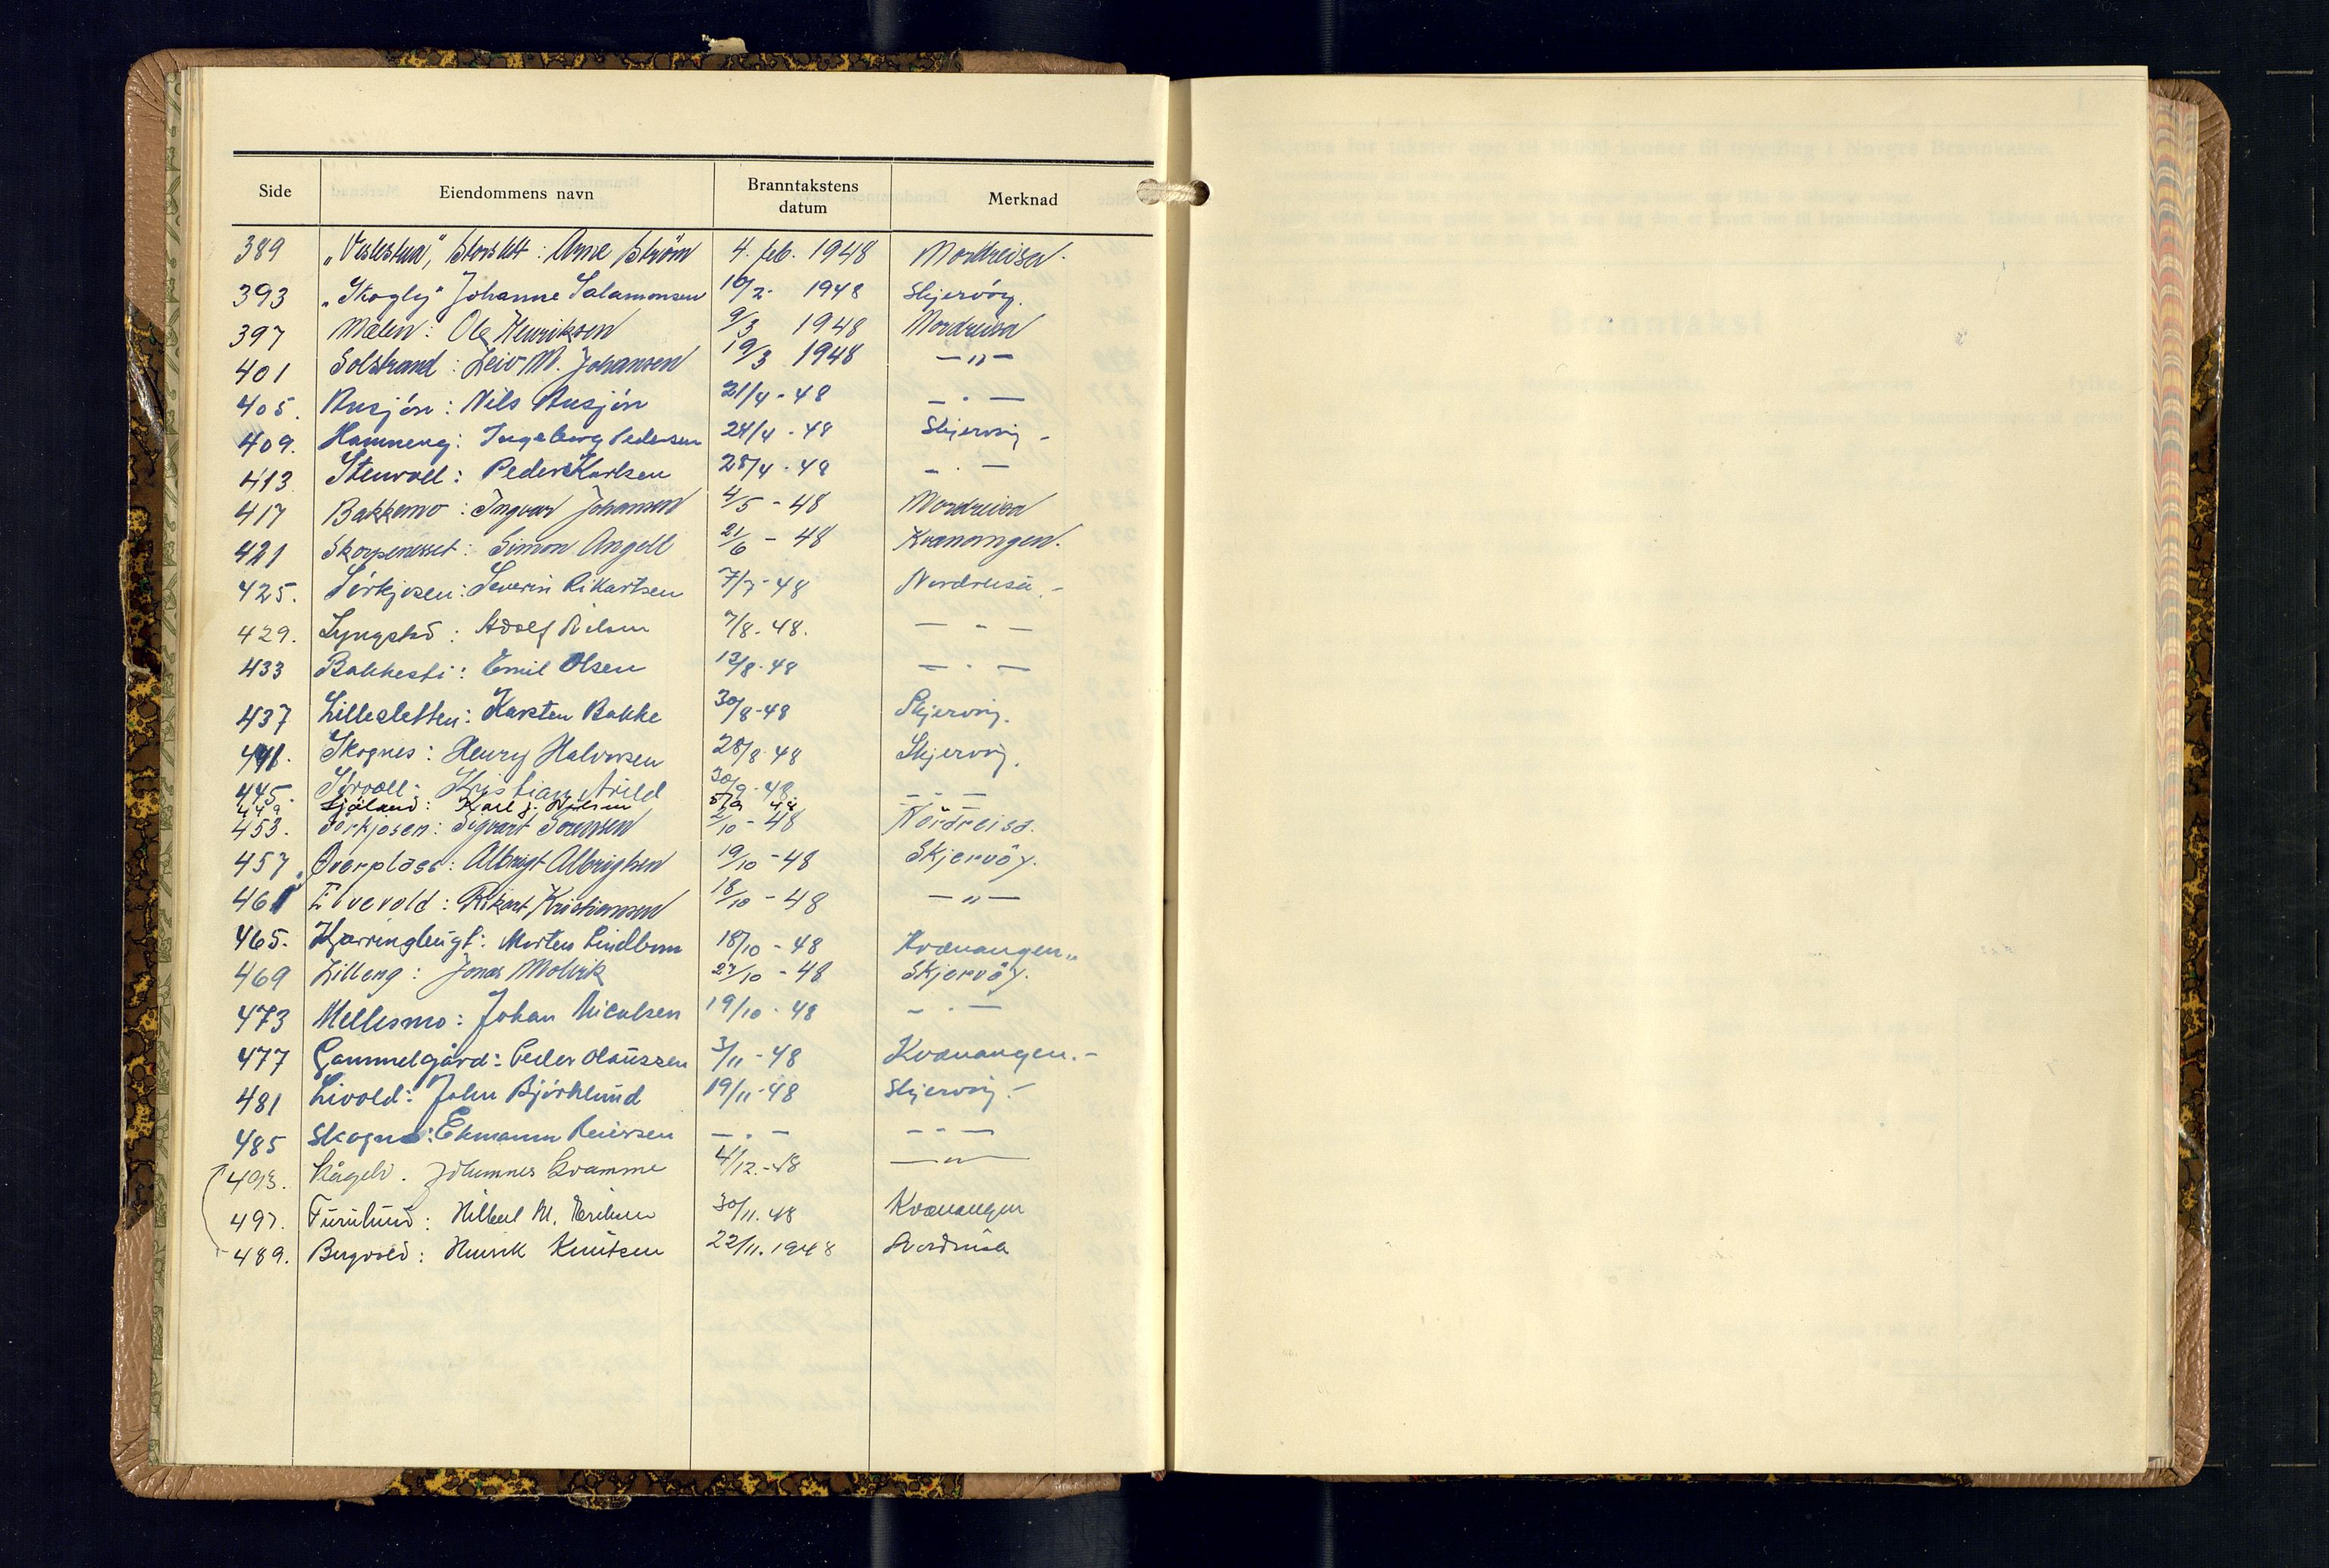 Side Eiendommens navn Branntakstens datum Merknad
389 „Veslestua", Storslett: Arne Ström 4. feb. 1948 Nordreisa.
393 „Skogly" Johanne Salamonsen 10/2- 1948 Skjervöy.
397 Mælen: Ole Henriksen 9/3 1948 Nordreisa
401 Solstrand: Leiv M. Johansen 19/3 1948 —"—
405. Ausjön: Nils Ausjön 21/4-48 — " —
409. Hamneng: Ingeborg Pedersen 24/4-48 Skjervöy -
413 Stenvoll: Peder Karlsen 28/4-48 — " —
417 Bakkemo: Ingvar Johansen 4/5-48 Nordreisa
421 Skorpenesset: Simon Angell 21/6-48 Kvænangen.
425. Sörkjosen: Severin Rikartsen 7/7-48 Nordreisa.-
429. Lyngstad: Adolf Nilsen 7/8-48. — " —
433 Bakkesti: Emil Olsen 12/8-48 — " —
437 Lillesletten: Karsten Bakke 30/8-48 Skjervöy.
441. Skognes: Henry Halvorsen 28/8-48 Skjervöy.
445. Sörvoll: Kristian Arild 30/9-48 — " —
449 Sjöland: Karl J. Nilsen 5/9 48 — " —
453. Sörkjosen: Sigvart Sörensen 2/10-48 Nordreisa.
457. Överplass: Albrigt Albrigtsen 19/10-48 Skjervöy.
461 Elvevold: Rikart Kristiansen 18/10-48 —"—
465. Kjerringbugt: Morten Lindbom 18/10-48 Kvænangen„
469 Lilleng: Jonas Mollvik 27/10-48 Skjervöy.
473 Mellesmo: Johan Nicolsen 19/10-48 — " —
477 Gammelgård: Peder Olaussen 3/11-48 Kvænangen.-
481 Livold: John Björklund 19/11-48 Skjervöy.-
485 Skognes: Ekmann Reiersen — " — — " —
493. Hågeli. Johannes Kvamme 4/12.-48 —"—
497. Furulund: Hilbert M. Eriksen 30/11.48 Kvænangen
489. Bergvold: Henrik Knutsen 22/11.1948 Nordreisa